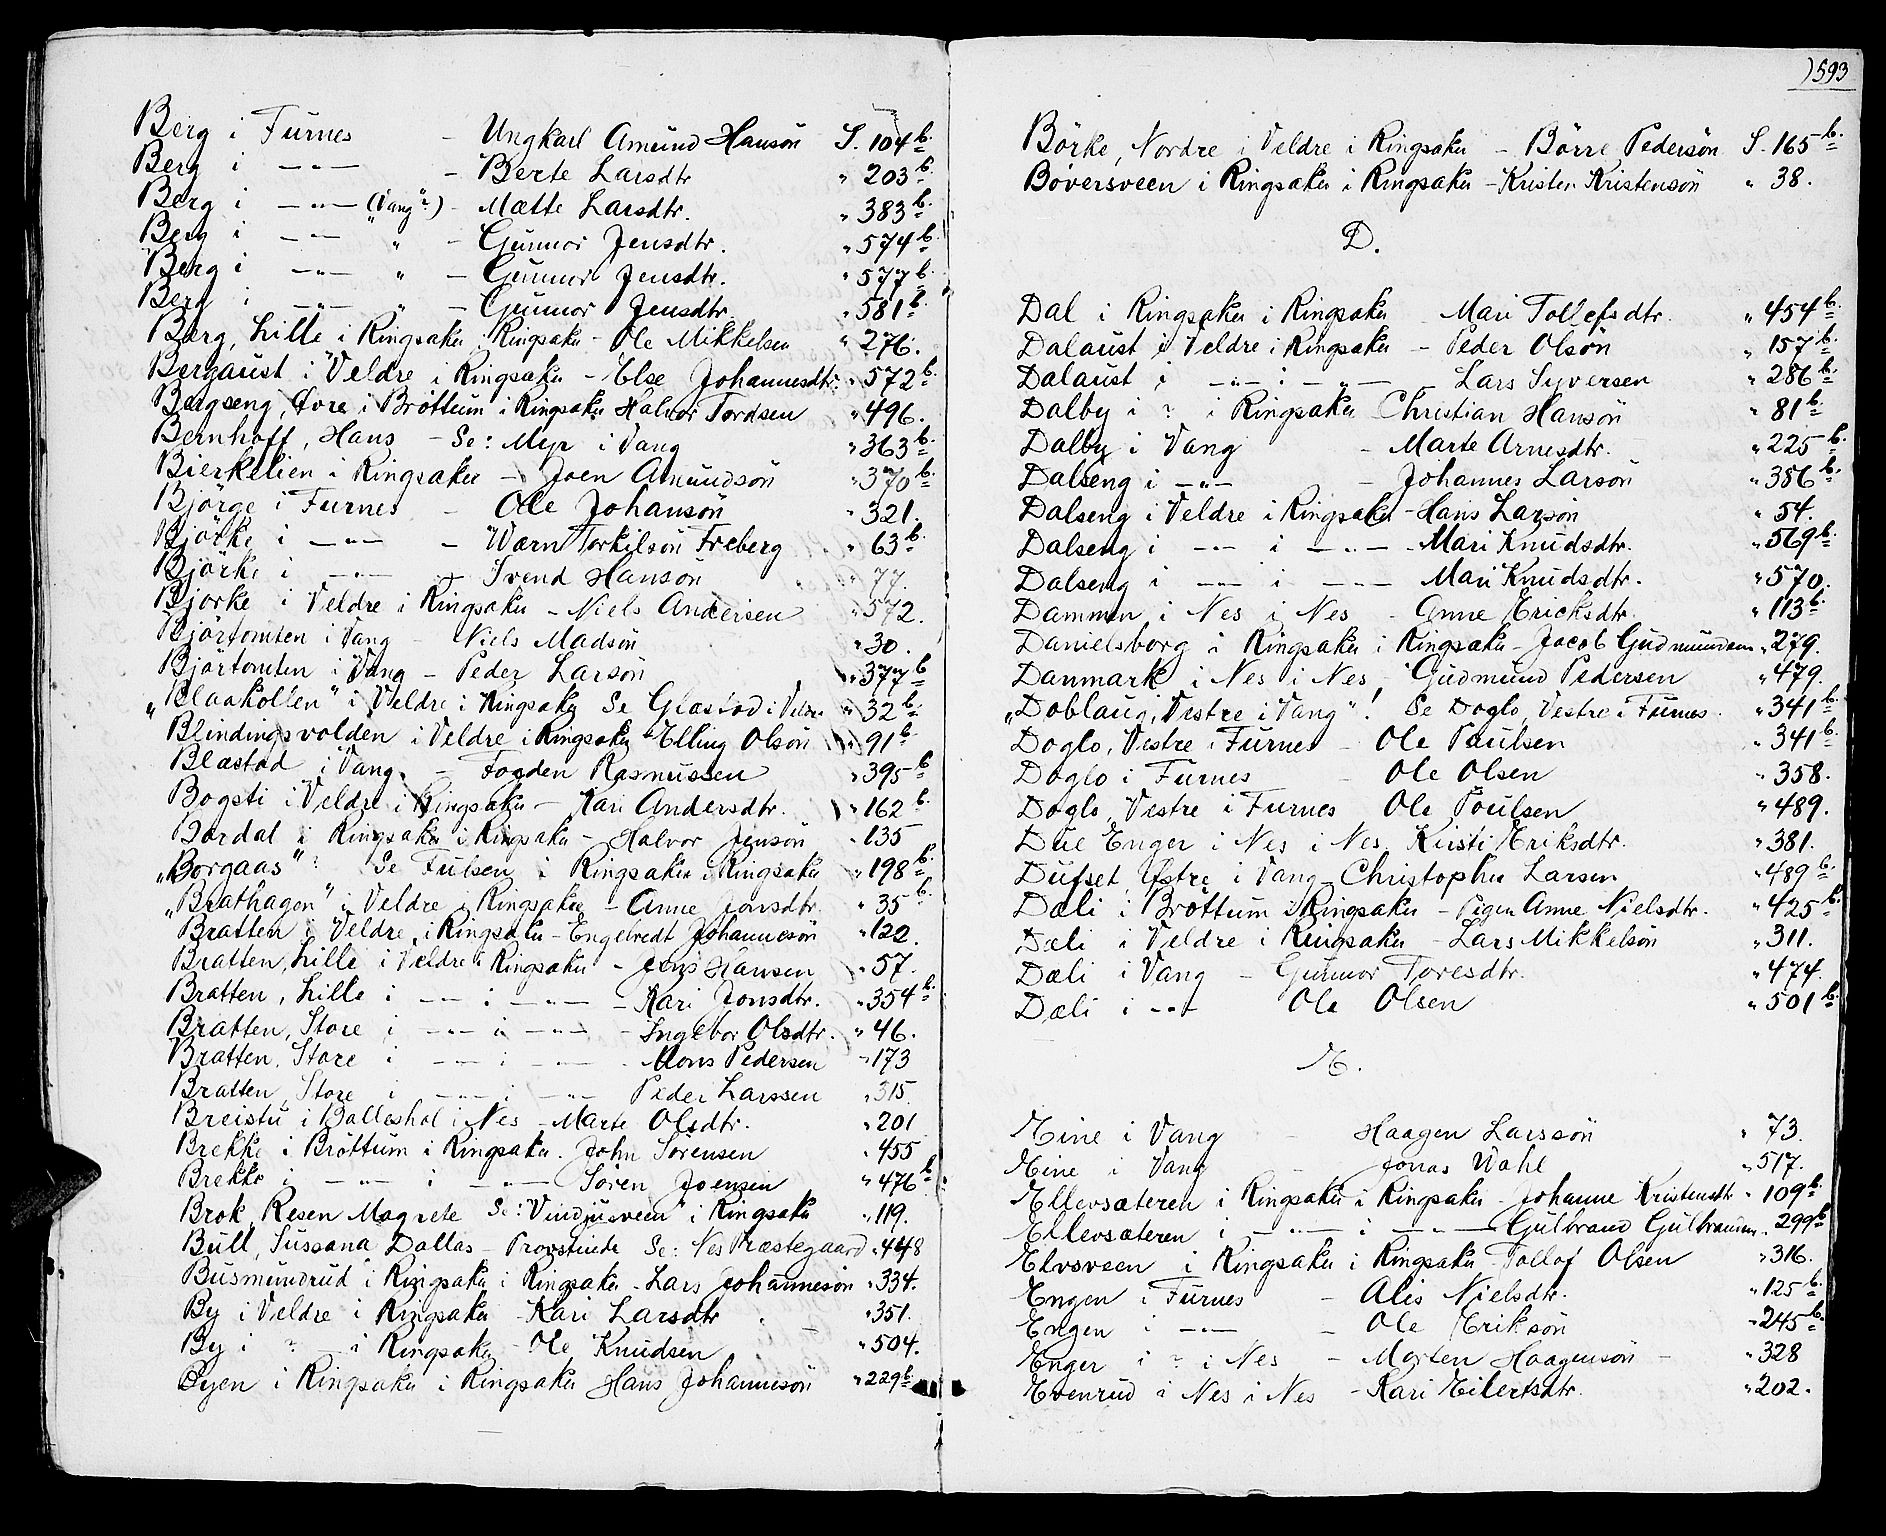 Berg i Furnes - Ungkarl Amund Hanson S. 104 b.
Berg i -"- - Berte Larsdtr " 203 b.
Berg i -"- (Vang ") - Mætte Larsdtr. " 383 b.
Berg i -"- " - Gunnor Jensdtr. " 574 b.
Berg i -"- " - Gunnor Jensdtr. " 577 b.
Berg i -"- " - Gunnor Jensdtr. " 581 b.
Berg, Lille i Ringsaker i Ringsaker - Ole Mikkelsen " 276.
Bergaust i Veldre i Ringsaker - Else Johannesdtr. " 572 b.
Bergseng, Øvre i Brøttum i Ringsaker Halvor Tordsen " 496.
Bernhoft, Hans - Se: Myr i Vang " 363 b.
Bierkelien i Ringsaker - Joen Amundsön " 370 b.
Björge i Furnes - Ole Johansön " 321.
Björke i -"- - Wærn Torkilsön Freberg " 63 b.
Björke i -"- - Svend Hansön " 77.
Björke i Veldre i Ringsaker - Niels Andersen " 572.
Björtomten i Vang - Niels Madsön " 30.
Björtomten i Vang - Peder Larsön " 377 b.
"Blaakollen" i Veldre i Ringsaker Se Glæstad i Veldre " 32 b.
Blindingsvolden i Veldre i Ringsaker Elling Olsön " 91 b.
Blæstad i Vang. - Fogden Rasmussen " 395 b.
Bogsti i Veldre i Ringsaker - Kari Andersdtr. " 162 b.
Bordal i Ringsaker i Ringsaker - Halvor Jensön " 135
"Borgaas": Se Fulsen i Ringsaker i Ringsaker " 198 b.
"Brathagen" i Veldre i Ringsaker - Anne Jonsdtr. " 35 b.
Bratten i Veldre i Ringsaker - Engelbredt Johannesön " 122.
Bratten, Lille i Veldre i Ringsaker - Jens Hansen " 57.
Bratten, Lille i -"- i -"- - Kari Jonsdtr. " 354 b.
Bratten, Store i -"- i -"- - Ingebor Olsdtr. " 46.
Bratten, Store i -"- i -"- - Mons Pedersen " 173
Bratten, Store i -"- i -"- Peder Larssen " 315.
Breistu i Balleshol i Nes - Marte Olsdtr. " 201
Brekke i Brøttum i Ringsaker. John Sørensen " 455
Brekke i -"- i -"- Sören Joensen " 476 b.
Brok, Resen Magrete Se: "Vindjusveen" i Ringsaker " 119.
Bull, Sussana Dallas - Provstinde Se: Nes Præstegaard " 448
Busmundrud i Ringsaker i Ringsaker - Lars Johannesön " 334.
By i Veldre i Ringsaker - Kari Larsdtr " 351.
By i ? i Ringsaker - Ole Knudsen " 504.
Byen i Ringsaker i Ringsaker Hans Johannesön " 229 b.
593
Börke, Nordre i Veldre i Ringsaker - Börre Pedersön S. 165 b.
Böversveen i Ringsaker i Ringsaker - Kristen Kristensön " 38.
D.
Dal i Ringsaker i Ringsaker Mari Tollefsdtr. " 454 b.
Dalaust i Veldre i Ringsaker - Peder Olsön " 157 b.
Dalaust i -"- i -"- - Lars Syversen " 286 b.
Dalby i ? i Ringsaker Christian Hansön " 81 b.
Dalby i Vang - Marte Arnesdtr. " 225 b.
Dalseng i -"- - Johannes Larsön " 386 b.
Dalseng i Veldre i Ringsaker - Hans Larsön " 54.
Dalseng i -"- i -"- - Mari Knudsdtr. " 569 b.
Dalseng i -"- i -"- Mari Knudsdtr. " 570.
Dammen i Nes i Nes - Anne Ericksdtr. " 113 b.
Danielsborg i Ringsaker i Ringsaker - Jacob Gudmundsen " 279.
Danmark i Nes i Nes, Gudmund Pedersen " 479.
"Doblaug, Vestre i Vang"! Se Doglo, Vestre i Furnes. " 341 b.
Doglo, Vestre i Furnes - Ole Paulsen " 341 b.
Doglo i Furnes - Ole Olsen " 358.
Doglo, Vestre i Furnes Ole Poulsen " 489.
Due Enger i Nes i Nes Kirsti Eriksdtr. " 381.
Dufset, Østre i Vang - Christopher Larsen " 489 b.
Dæli i Brøttum i Ringsaker - Pigen Anne Nielsdtr. " 425 b.
Dæli i Veldre i Ringsaker - Lars Mikkelsön " 311.
Dæli i Vang - Gunnor Toresdtr. " 474.
Dæli i -"- Ole Olsen " 501 b.
E.
Eine i Vang - Haagen Larssön " 73.
Eine i Vang - Jonas Wahl " 517.
Ellevsæteren i Ringsaker i Ringsaker - Johanne Kristensdtr " 109 b.
Ellevsæteren i -"- i -"- Gulbrand Gulbrandsen. " 299 b
Elvsveen i Ringsaker i Ringsaker - Tollof Olsen " 316.
Engen i Furnes - Alis Nielsdtr. " 125 b.
Engen i -"- - Ole Eriksön " 245 b.
Enger i ? i Nes - Morten Haagensön - " 328
Evenrud i Nes i Nes - Kari Eilertsdtr. " 202.